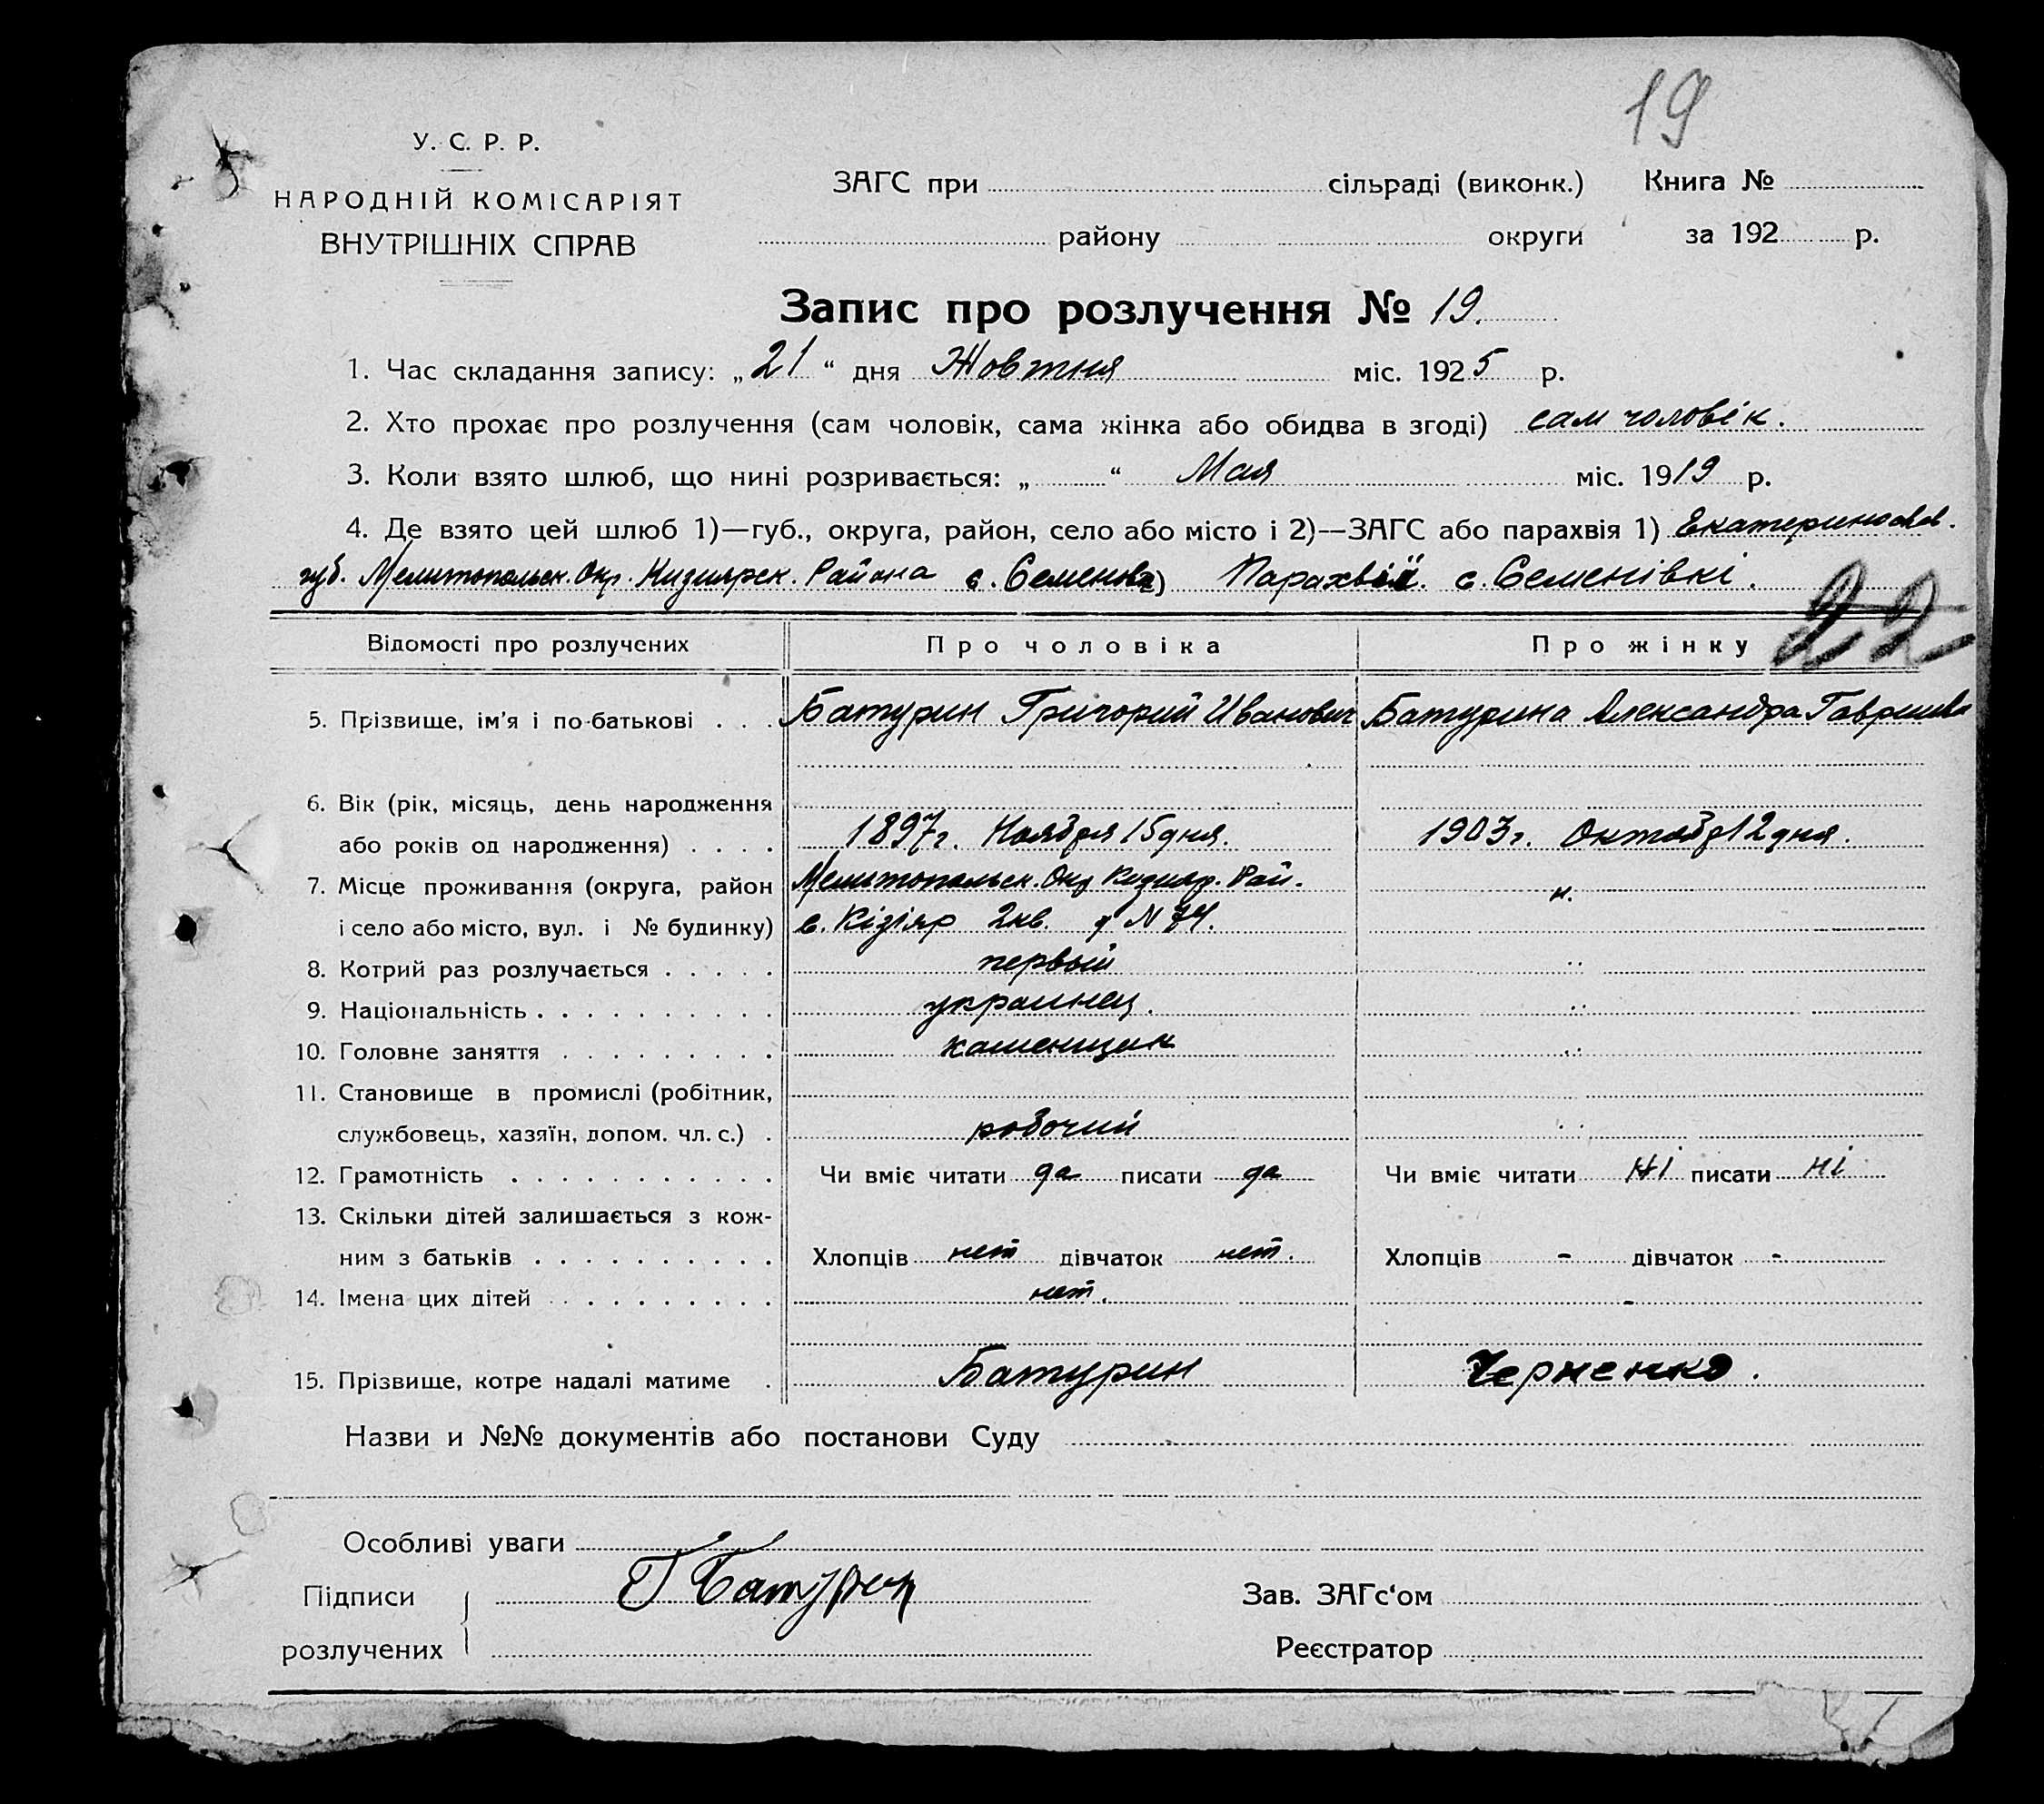 19
У. С. Р. Р.
НАРОДНІЙ КОМІСАРІЯТ
ВНУТРІШНІХ СПРАВ
ЗАГС при сільраді (виконк.) Книга №
району округи за 192 р.
Запис про розлучення № 19.
1. Час складання запису: „21“ дня Жовтня міс. 1925 р.
2. Хто прохає про розлучення (сам чоловік, сама жінка або обидва в згоді) сам чоловік.
3. Коли взято шлюб, що нині розривається: „ “ Мая міс. 1919 р.
4. Де взято цей шлюб 1)—губ., округа, район, село або місто і 2)—ЗАГС або парахвія 1) Екатеринослав.
губ. Мелитопольск. Окр. Кизиярск. Района с. Семеновка 2) Парахвії с. Семенівкі.
22
Відомості про розлучених Про чоловіка Про жінку
5. Прізвище, ім'я і по-батькові . . . Батурин Григорий Иванович Батурина Александра Гаврилов
6. Вік (рік, місяць, день народження
або років од народження) . . . . 1897 г. Ноября 15 дня. 1903 г. Октяб 12 дня.
7. Місце проживання (округа, район Мелитопольск. Окр Кизияр. Рай. „
і село або місто, вул. і № будинку) с. Кізіяр 2 кв. д N 74.
8. Котрий раз розлучається . . . . . первый „
9. Національність . . . . . . . . . . украинец. „
10. Головне заняття . . . . . . . . . каменщик „
11. Становище в промислі (робітник,
службовець, хазяїн, допом. чл. с.) . робочий „
12. Грамотність . . . . . . . . . . . Чи вміє читати да писати да Чи вміє читати ні писати ні
13. Скільки дітей залишається з кож-
ним з батьків . . . . . . . . . . Хлопців нет дівчаток нет. Хлопців - дівчаток -
14. Імена цих дітей . . . . . . . . . нет. -
15. Прізвище, котре надалі матиме . Батурин Черненко.
Назви и №№ документів або постанови Суду
Особливі уваги
Підписи Г Батурин Зав. ЗАГс‘ом
розлучених Реєстратор